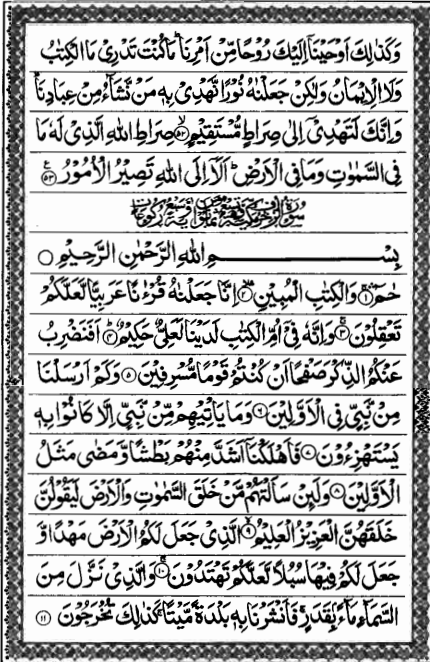 وَكَذٰلِكَ اَوْحَيْنَاۤ اِلَيْكَ رُوْحًا مِّنْ اَمْرِنَا ؕ مَا كُنْتَ تَدْرِىْ مَا الْكِتٰبُ
وَلَا الْاِيْمَانُ وَلٰكِنْ جَعَلْنٰهُ نُوْرًا نَّهْدِىْ بِهٖ مَنْ نَّشَآءُ مِنْ عِبَادِنَا ؕ
وَاِنَّكَ لَتَهْدِىْۤ اِلٰى صِرَاطٍ مُّسْتَقِيْمٍ ۙ﴿۵۲﴾ صِرَاطِ اللّٰهِ الَّذِىْ لَهٗ مَا
فِى السَّمٰوٰتِ وَمَا فِى الْاَرْضِ ؕ اَلَاۤ اِلَى اللّٰهِ تَصِيْرُ الْاُمُوْرُ ﴿۵۳﴾
بِسْمِ اللّٰهِ الرَّحْمٰنِ الرَّحِيْمِ
حٰمٓ ﴿۱﴾ وَالْكِتٰبِ الْمُبِيْنِ ﴿۲﴾ اِنَّا جَعَلْنٰهُ قُرْءٰنًا عَرَبِيًّا لَّعَلَّكُمْ
تَعْقِلُوْنَ ﴿۳﴾ وَاِنَّهٗ فِىْۤ اُمِّ الْكِتٰبِ لَدَيْنَا لَعَلِىٌّ حَكِيْمٌ ﴿۴﴾ اَفَنَضْرِبُ
عَنْكُمُ الذِّكْرَ صَفْحًا اَنْ كُنْتُمْ قَوْمًا مُّسْرِفِيْنَ ﴿۵﴾ وَكَمْ اَرْسَلْنَا
مِنْ نَّبِىٍّ فِى الْاَوَّلِيْنَ ﴿۶﴾ وَمَا يَاْتِيْهِمْ مِّنْ نَّبِىٍّ اِلَّا كَانُوْا بِهٖ
يَسْتَهْزِءُوْنَ ﴿۷﴾ فَاَهْلَكْنَاۤ اَشَدَّ مِنْهُمْ بَطْشًا وَّمَضٰى مَثَلُ
الْاَوَّلِيْنَ ﴿۸﴾ وَلَئِنْ سَاَلْتَهُمْ مَّنْ خَلَقَ السَّمٰوٰتِ وَالْاَرْضَ لَيَقُوْلُنَّ
خَلَقَهُنَّ الْعَزِيْزُ الْعَلِيْمُ ﴿۹﴾ الَّذِىْ جَعَلَ لَكُمُ الْاَرْضَ مَهْدًا وَّ
جَعَلَ لَكُمْ فِيْهَا سُبُلًا لَّعَلَّكُمْ تَهْتَدُوْنَ ﴿۱۰﴾ وَالَّذِىْ نَزَّلَ مِنَ
السَّمَآءِ مَآءًۢ بِقَدَرٍ ۚ فَاَنْشَرْنَا بِهٖ بَلْدَةً مَّيْتًا ۚ كَذٰلِكَ تُخْرَجُوْنَ ﴿۱۱﴾